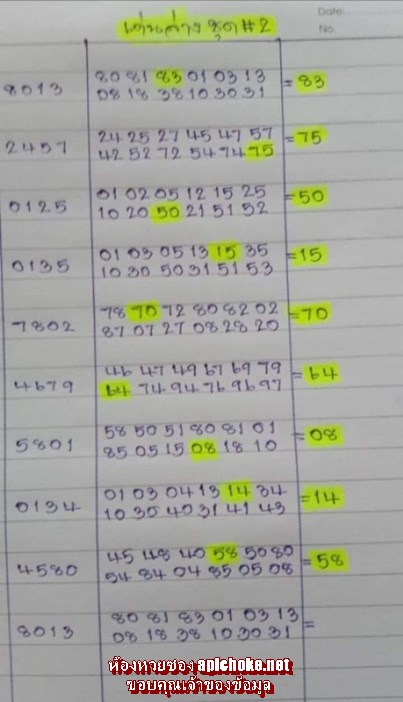 Date
No.
เด่นล่าง ชุด #2
8013 80 81 83 01 03 13 = 83
08 18 38 10 30 31
2457 24 25 27 45 47 57 = 75
42 52 72 54 74 75
0125 01 02 05 12 15 25 = 50
10 20 50 21 51 52
0135 01 03 05 13 15 35 = 15
10 30 50 31 51 53
7802 78 70 72 80 82 02 = 70
87 07 27 08 28 20
4679 46 47 49 67 69 79 = 64
64 74 94 76 96 97
5801 58 50 51 80 81 01 = 08
85 05 15 08 18 10
0134 01 03 04 13 14 34 = 14
10 30 40 31 41 43
4580 45 48 40 58 50 80 = 58
54 84 04 85 05 08
8013 80 81 83 01 03 13 =
08 18 38 10 30 31
ห้องหวยซอง apichoke.net
ขอบคุณเจ้าของข้อมูล